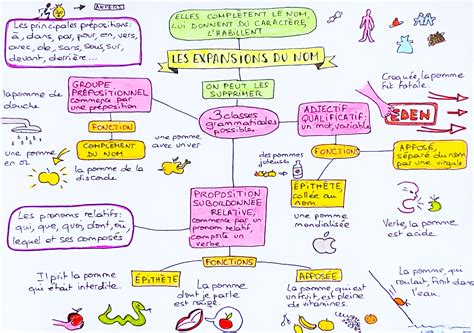 ANVERS
Les principales prépositions:
à, dans, par, pour, en, vers,
avec, de, sans, sous, sur,
devant, derrière...
ELLES COMPLÈTENT LE NOM,
LUI DONNENT DU CARACTÈRE,
L'HABILLENT
LES EXPANSIONS DU NOM
ON PEUT LES
SUPPRIMER
3 classes
grammaticales
possibles
GROUPE
PRÉPOSITIONNEL
commence par
une préposition
la pomme de
douche
FONCTION
COMPLÉMENT
DU NOM
une pomme
en or
la pomme
de la
discorde
une pomme
avec un ver
ADJECTIF
QUALIFICATIF:
un mot, variable
Croquée, la pomme
fut fatale.
EDEN
FONCTIONS
APPOSÉ,
séparé du nom
par une virgule
ÉPITHÈTE,
collée au
nom
des pommes
juteuses
une pomme
mondialisée
Verte, la pomme
est acide.
Les pronoms relatifs:
qui, que, quoi, dont, où,
lequel et ses composés
PROPOSITION
SUBORDONNÉE
RELATIVE,
commence par un
pronom relatif,
comporte un
verbe
FONCTIONS
ÉPITHÈTE
APPOSÉE
Il prit la pomme
qui était interdite.
La pomme
dont je parle
est rouge.
La pomme, qui est
un fruit, est pleine
de vitamines.
La pomme, qui
roulait, finit dans
l'eau.